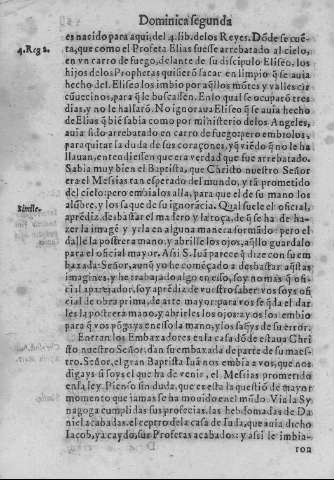 Dominica segunda
es nacido para aqui, del 4. lib. de los Reyes. Dõde se cuẽ-
4. Reg 2.
ta, que como el Profeta Elias fuesse arrebatado al cielo,
en vn carro de fuego, delante de su discipulo Eliseo, los
hijos de los Prophetas quisierõ sacar en limpio q̃ se auia
hecho del. Eliseo los imbio por aq̃llos mõtes y valles cir
cũuecinos, para q̃ le buscassen. En lo qual se ocuparõ tres
dias, y no le hallarõ. No ignoraua Eliseo q̃ se auia hecho
de Elias q̃ biẽ sabia como por ministerio de los Angeles,
auia sido arrebatado en carro de fuego: pero embiolos,
para quitar la duda de sus coraçones, y q̃ viẽdo q̃ no le ha
llauan, entendiessen que era verdad que fue arrebatado.
Sabia muy bien el Baptista, que Christo nuestro Señor
era el Messias tan esperado del mundo, y tã prometido
del cielo: pero embia los alla, para que el de su mano los
alũbre, y los saque de su ignorãcia. Qual suele el oficial,
Simile.
aprẽdiz desbastar el madero y la toça, de q̃ se ha de ha-
zer la imagẽ y yrla en alguna manera formãdo: pero el
dalle la postrera mano, y abrille los ojos, aq̃llo guardalo
para el oficial mayor. Assi S. Iuã parece q̃ dize con su em
baxada: Señor, aunq̃ yo he começado a desbastar aq̃stas
imagines, y he trabajado algo en esso, soy no mas q̃ ofi-
cial aparejador, soy aprẽdiz de vuestro saber: vos soys ofi
cial de obra prima, de arte mayor: para vos se q̃da el dar
les la postrera mano, y abrirles los ojos: a vos los embio
para q̃ vos põgays en esso la mano, y los saq̃ys de su error.
Entran los Embaxadores en la casa dõde estaua Chri
sto nuestro Señor, dan su embaxada de parte de su maes-
tro. Señor, el gran Baptista Iuã nos embia a vos, que nos
digays si soys el que ha de venir, el Messias prometido
en la ley. Pienso sin duda, que era esta la questiõ de mayor
momento que jamas se ha mouido en el mũdo. Via la Sy
nagoga cumplidas sus profecias, las hebdomadas de Da
niel acabadas, el ceptro dela casa de Iuda, que auia dicho
Iacob, ya caydo, sus Profetas acabados: y assi le imbia-
ron